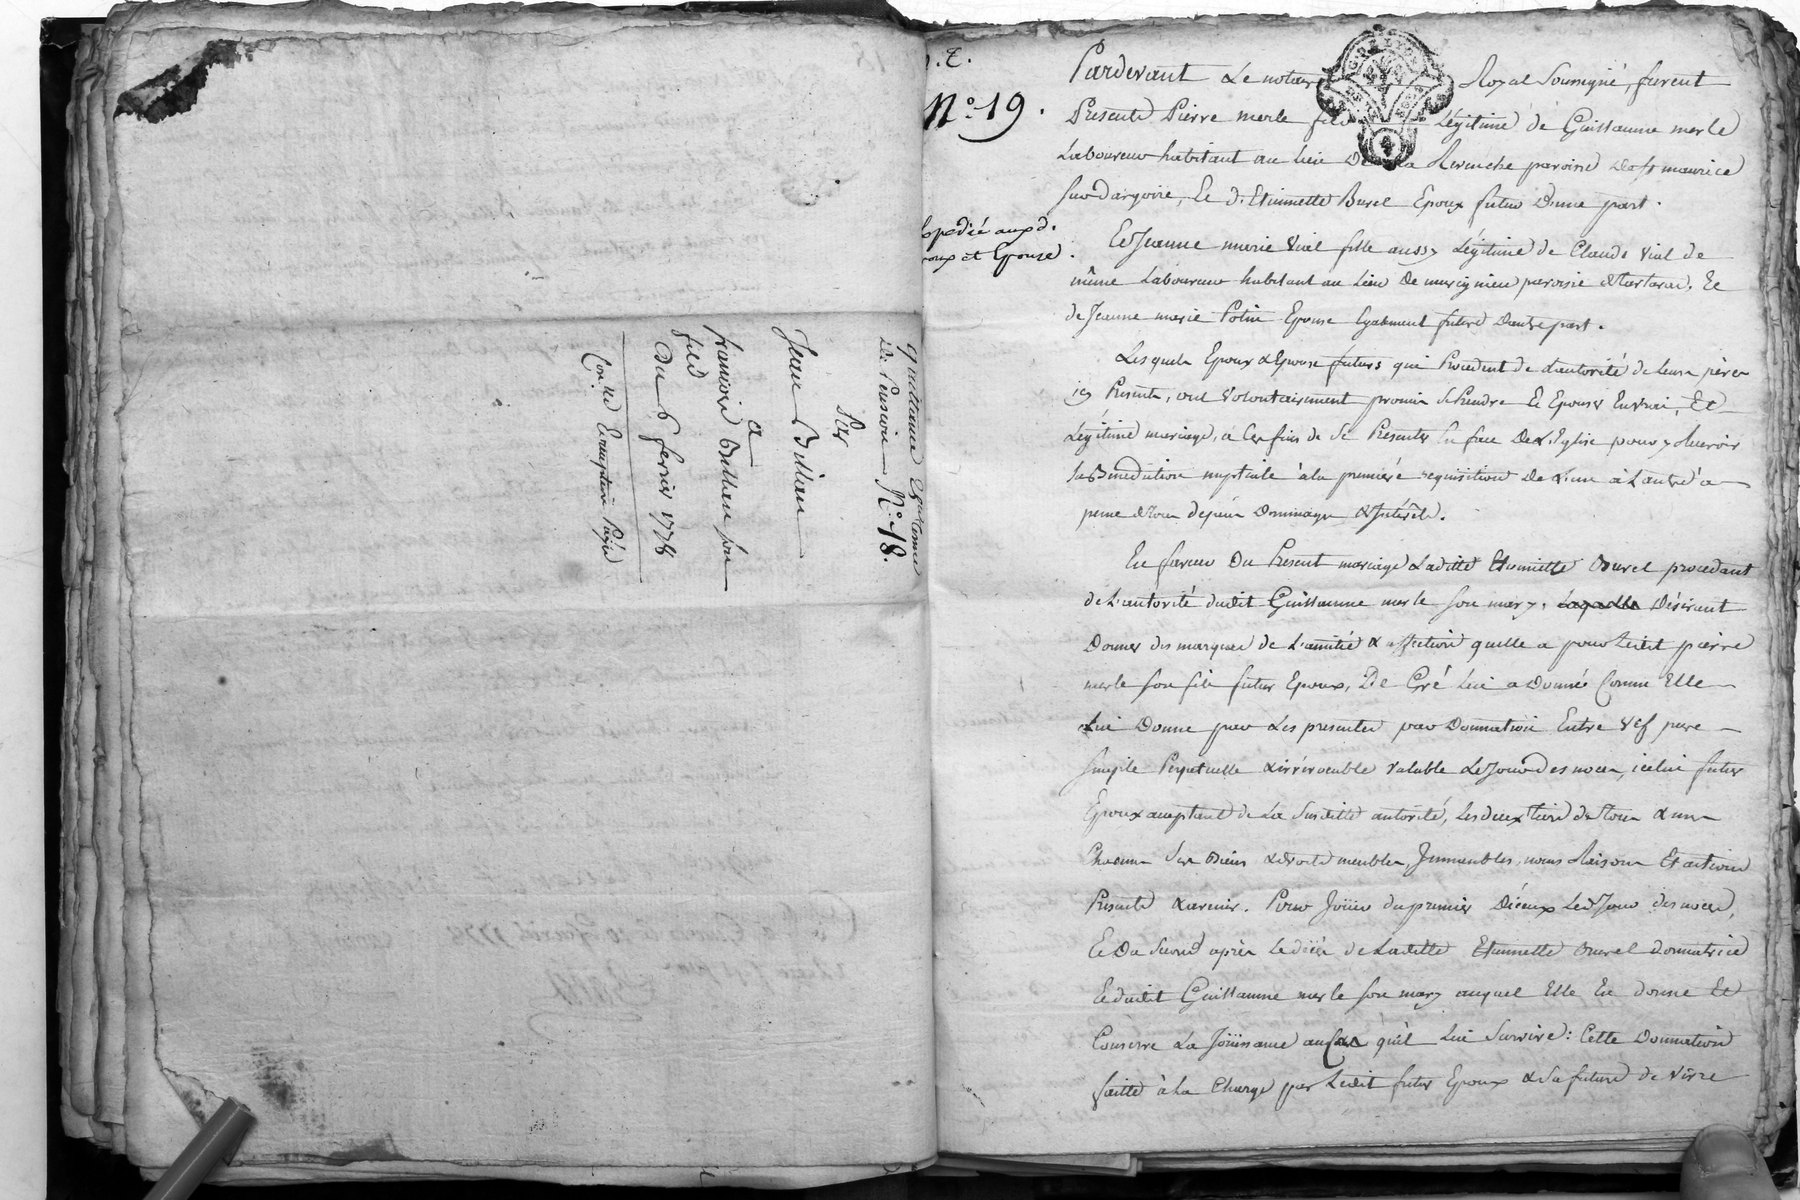 quittance Et
De Pension N.º 18.
Par
Jean
a
francois
fils
Du 6 fevrier 1778
p. E.
Nº 19.
expedié aux d.
Epoux et Epouse.
Pardevant Le notaire Royal Soussigné, furent
Presents Pierre merle fils Légitime de Guillaume merle
Laboureur habitant au lieu De la paroisse De st maurice
sur dargoire, Et d'Etiennette Burel Epoux futur D'une part.
Et Jeanne marie Vial fille aussy Légitime de Claude Vial de
même Laboureur habitant au Lieu De marcignieu paroisse de tartaras. Et
de Jeanne marie Potin Epouse Egalement future D'autre part.
Lesquels Epoux & Epouse futurs qui Procedent de L'autorité de Leurs pères
icy Presents, ont Volontairement promis se Prendre Et Epouser En vrai, Et
Légitime mariage, à Ces fins de se Presenter En face De L'Eglise pour y Recevoir
La Bénédiction nuptiale à la première requisition De L'un à L'autre à
peine de tous depens Dommages & Intérêts.
En faveur Du Present mariage Laditte Etiennette Burel procedant
de L'autorité dudit Guillaume merle son mary, Laquelle Désirant
Donner des marques de L'amitié & affection qu'elle a pour Ledit pierre
merle son fils futur Epoux, De Gré Lui a Donné Comme Elle
Lui Donne par Les presentes par Donnation Entre Vif pure
simple Perpetuelle & irrévocable Valable Le Jour des noces, icelui futur
Epoux acceptant de La Susditte autorité, Les deux tiers de tous & uns
Chacuns Ses Biens & droits meubles, Immeubles, noms Raisons Et actions
Presents & avenir. Pour Joüir du premier D'iceux Led. Jour des noces,
Et Du Second après Le décès de Laditte Etiennette Burel donnatrice
Et dudit Guillaume merle son mary auquel Elle En donne Et
Conserve La Joüissance au Cas qu'il Lui Survive: Cette Donnation
faitte à La Charge par Ledit futur Epoux & Sa future de vivre